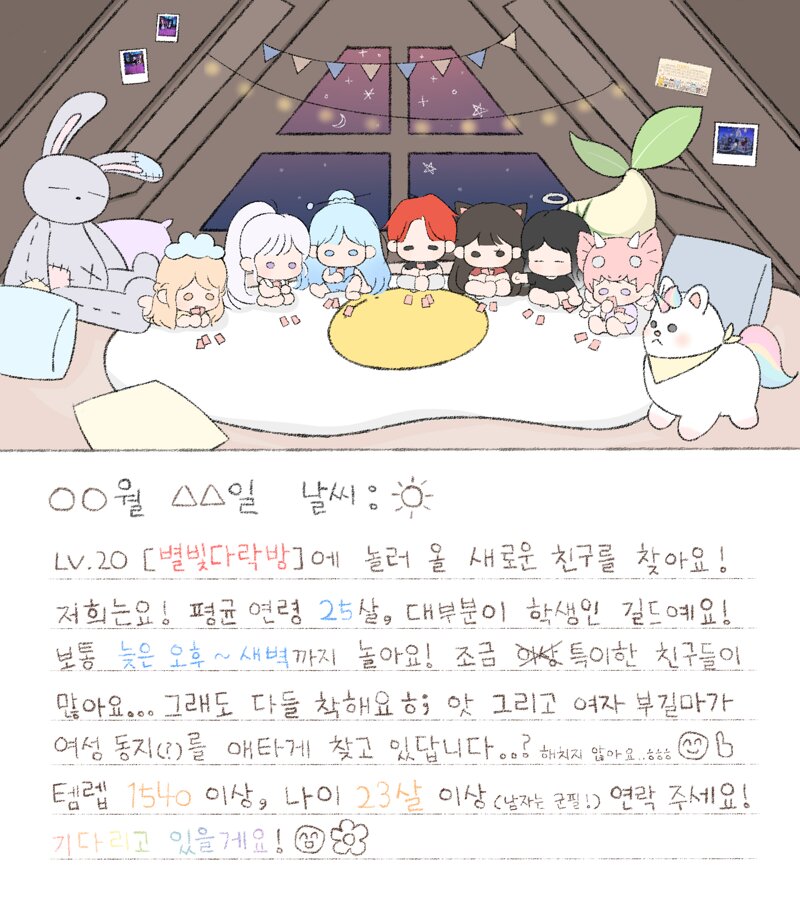 ○○월 △△일 날씨:
LV.20 [별빛다락방]에 놀러 올 새로운 친구를 찾아요!
저희는요! 평균 연령 25살, 대부분이 학생인 길드예요!
보통 늦은 오후~새벽까지 놀아요! 조금 이상 특이한 친구들이
많아요... 그래도 다들 착해요ㅎ; 앗 그리고 여자 부길마가
여성 동지(?)를 애타게 찾고 있답니다..? 해치지 않아요..ㅎㅎㅎ
템렙 1540 이상, 나이 23살 이상(남자는 군필!) 연락 주세요!
기다리고 있을게요!